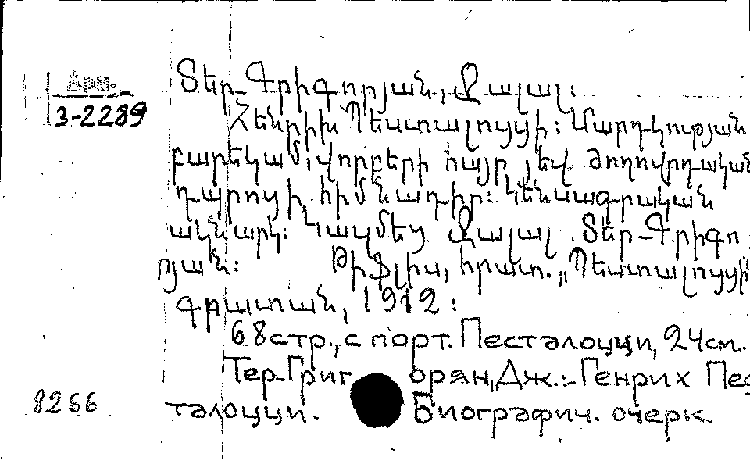 Арм.
3-2289
Տեր-Գրիգորյան, Ջալալ:
Հենրիխ Պեստալոցցի: Մարդկության
բարեկամ, վորբերի հայր յեվ ժողովրդական
դպրոցի հիմնադիր: Կենսագրական
ակնարկ: Կազմեց Ջալալ Տեր-Գրիգո
րյան: Թիֆլիս, հրատ. „Պեստալոցցի
գրատան, 1912:
68 стр., с порт. Песталоцци, 24 см.
Тер-Григорян, Дж.:-Генрих Пес
8266 талоцци. Биографич. очерк.